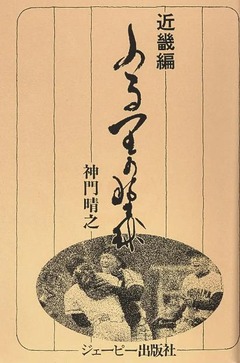 近畿編
ふる里の
神門晴之
ジェーピー出版社